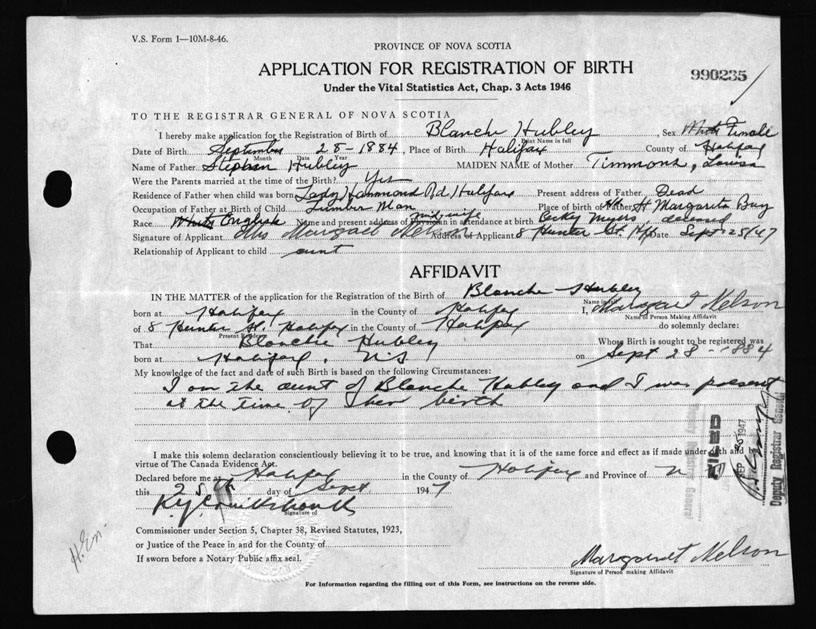 V.S. Form 1—10M-8-46.
PROVINCE OF NOVA SCOTIA
APPLICATION FOR REGISTRATION OF BIRTH
990235
Under the Vital Statistics Act, Chap. 3 Acts 1946
TO THE REGISTRAR GENERAL OF NOVA SCOTIA
I hereby make application for the Registration of Birth of Blanche Hubley , Sex White Female
Print Name in full
Date of Birth September 28 - 1884 , Place of Birth Halifax County of Halifax
Month Date Year
Name of Father Stephen Hubley MAIDEN NAME of Mother Timmons, Louisa
Were the Parents married at the time of the Birth? Yes
Residence of Father when child was born Lady Hammond Rd Halifax Present address of Father Dead
Occupation of Father at Birth of Child Lumber Man Place of birth of Father St Margarets Bay
Race White English Name and present address of Physician in attendance at birth Becky Myers deceased
midwife
Signature of Applicant Mrs Margaret Nelson Address of Applicant 8 Hunter St. Hfx Date Sept 25/47
Relationship of Applicant to child aunt
AFFIDAVIT
IN THE MATTER of the application for the Registration of the Birth of Blanche Hubley
Name in full
born at Halifax in the County of Halifax I, Margaret Nelson
Name of Person Making Affidavit
of 8 Hunter St. Halifax in the County of Halifax do solemnly declare:
Present Residence
That Blanche Hubley Whose Birth is sought to be registered was
born at Halifax, N.S on Sept 28 - 1884
My knowledge of the fact and date of such Birth is based on the following Circumstances:
I am the aunt of Blanche Hubley and I was present
at the time of her birth
I make this solemn declaration conscientiously believing it to be true, and knowing that it is of the same force and effect as if made under oath and
virtue of The Canada Evidence Act.
Declared before me at Halifax in the County of Halifax and Province of N
this 25th day of Sept 1947
Signature of
Commissioner under Section 5, Chapter 38, Revised Statutes, 1923,
or Justice of the Peace in and for the County of
If sworn before a Notary Public affix seal.
Margaret Nelson
Signature of Person making Affidavit
For Information regarding the filling out of this Form, see instructions on the reverse side.
FILED
SEP 25 1947
Deputy Registrar General
H. En.